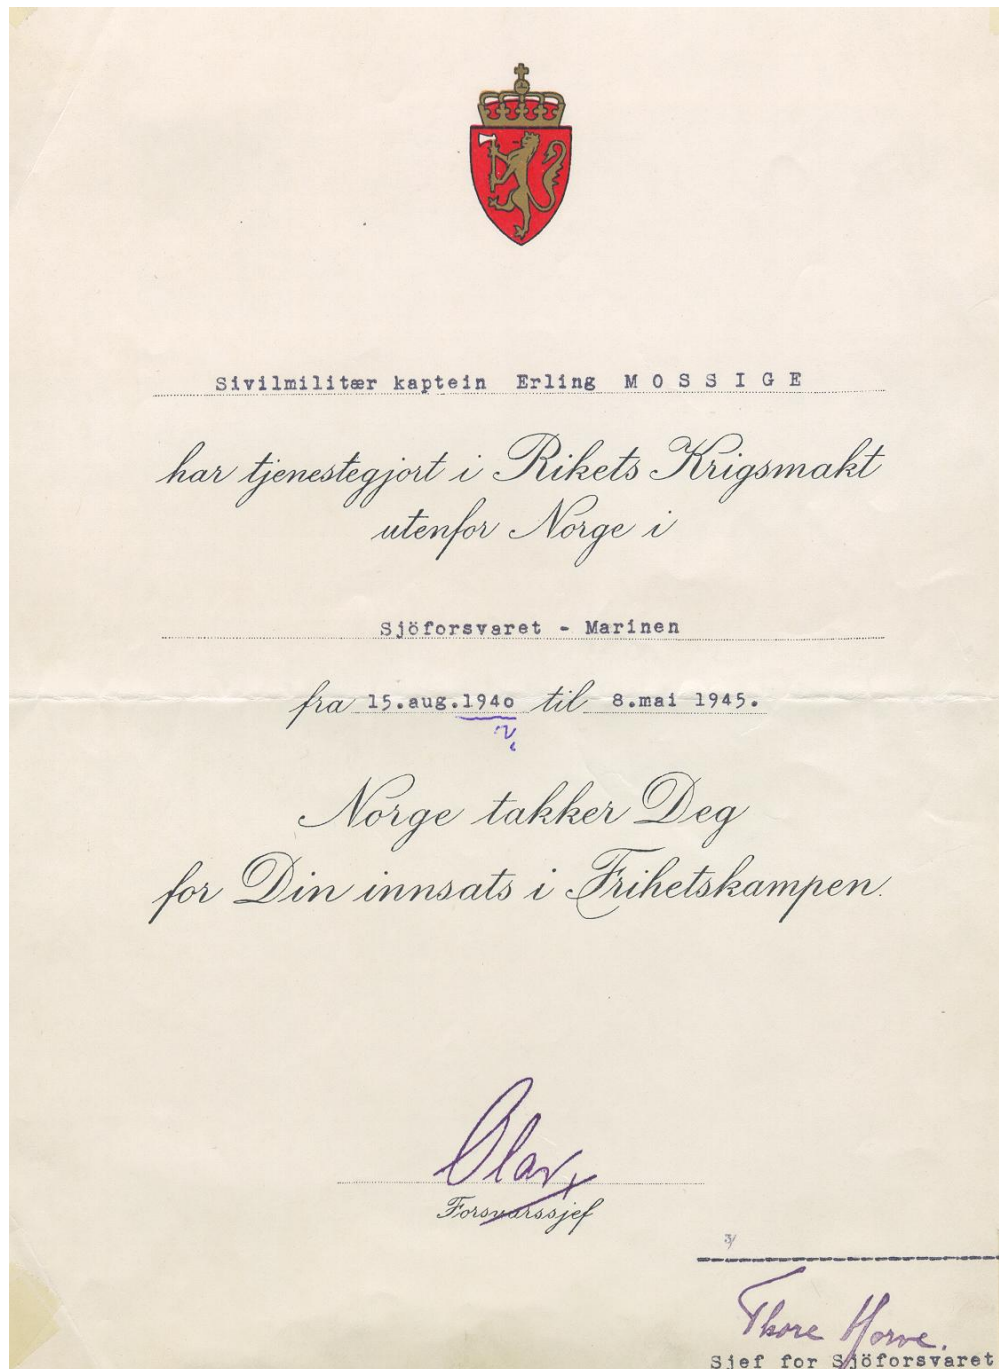 Sivilmilitær kaptein Erling M O S S I G E
har tjenestegjort i Rikets Krigsmakt
utenfor Norge i
Sjöforsvaret - Marinen
fra 15.aug.1940 til 8.mai 1945.
Norge takker Deg
for Din innsats i Frihetskampen.
Olav
Forsvarssjef
Thore Horve.
Sjef for Sjöforsvaret